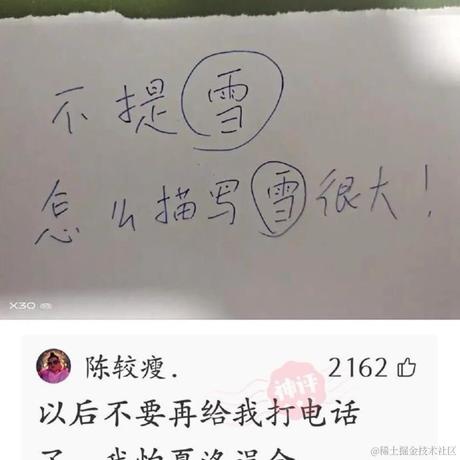 不提雪
怎么描写雪很大！
X30
陈较瘦.
2162
神评
以后不要再给我打电话
了，我怕夏洛误会
@稀土掘金技术社区